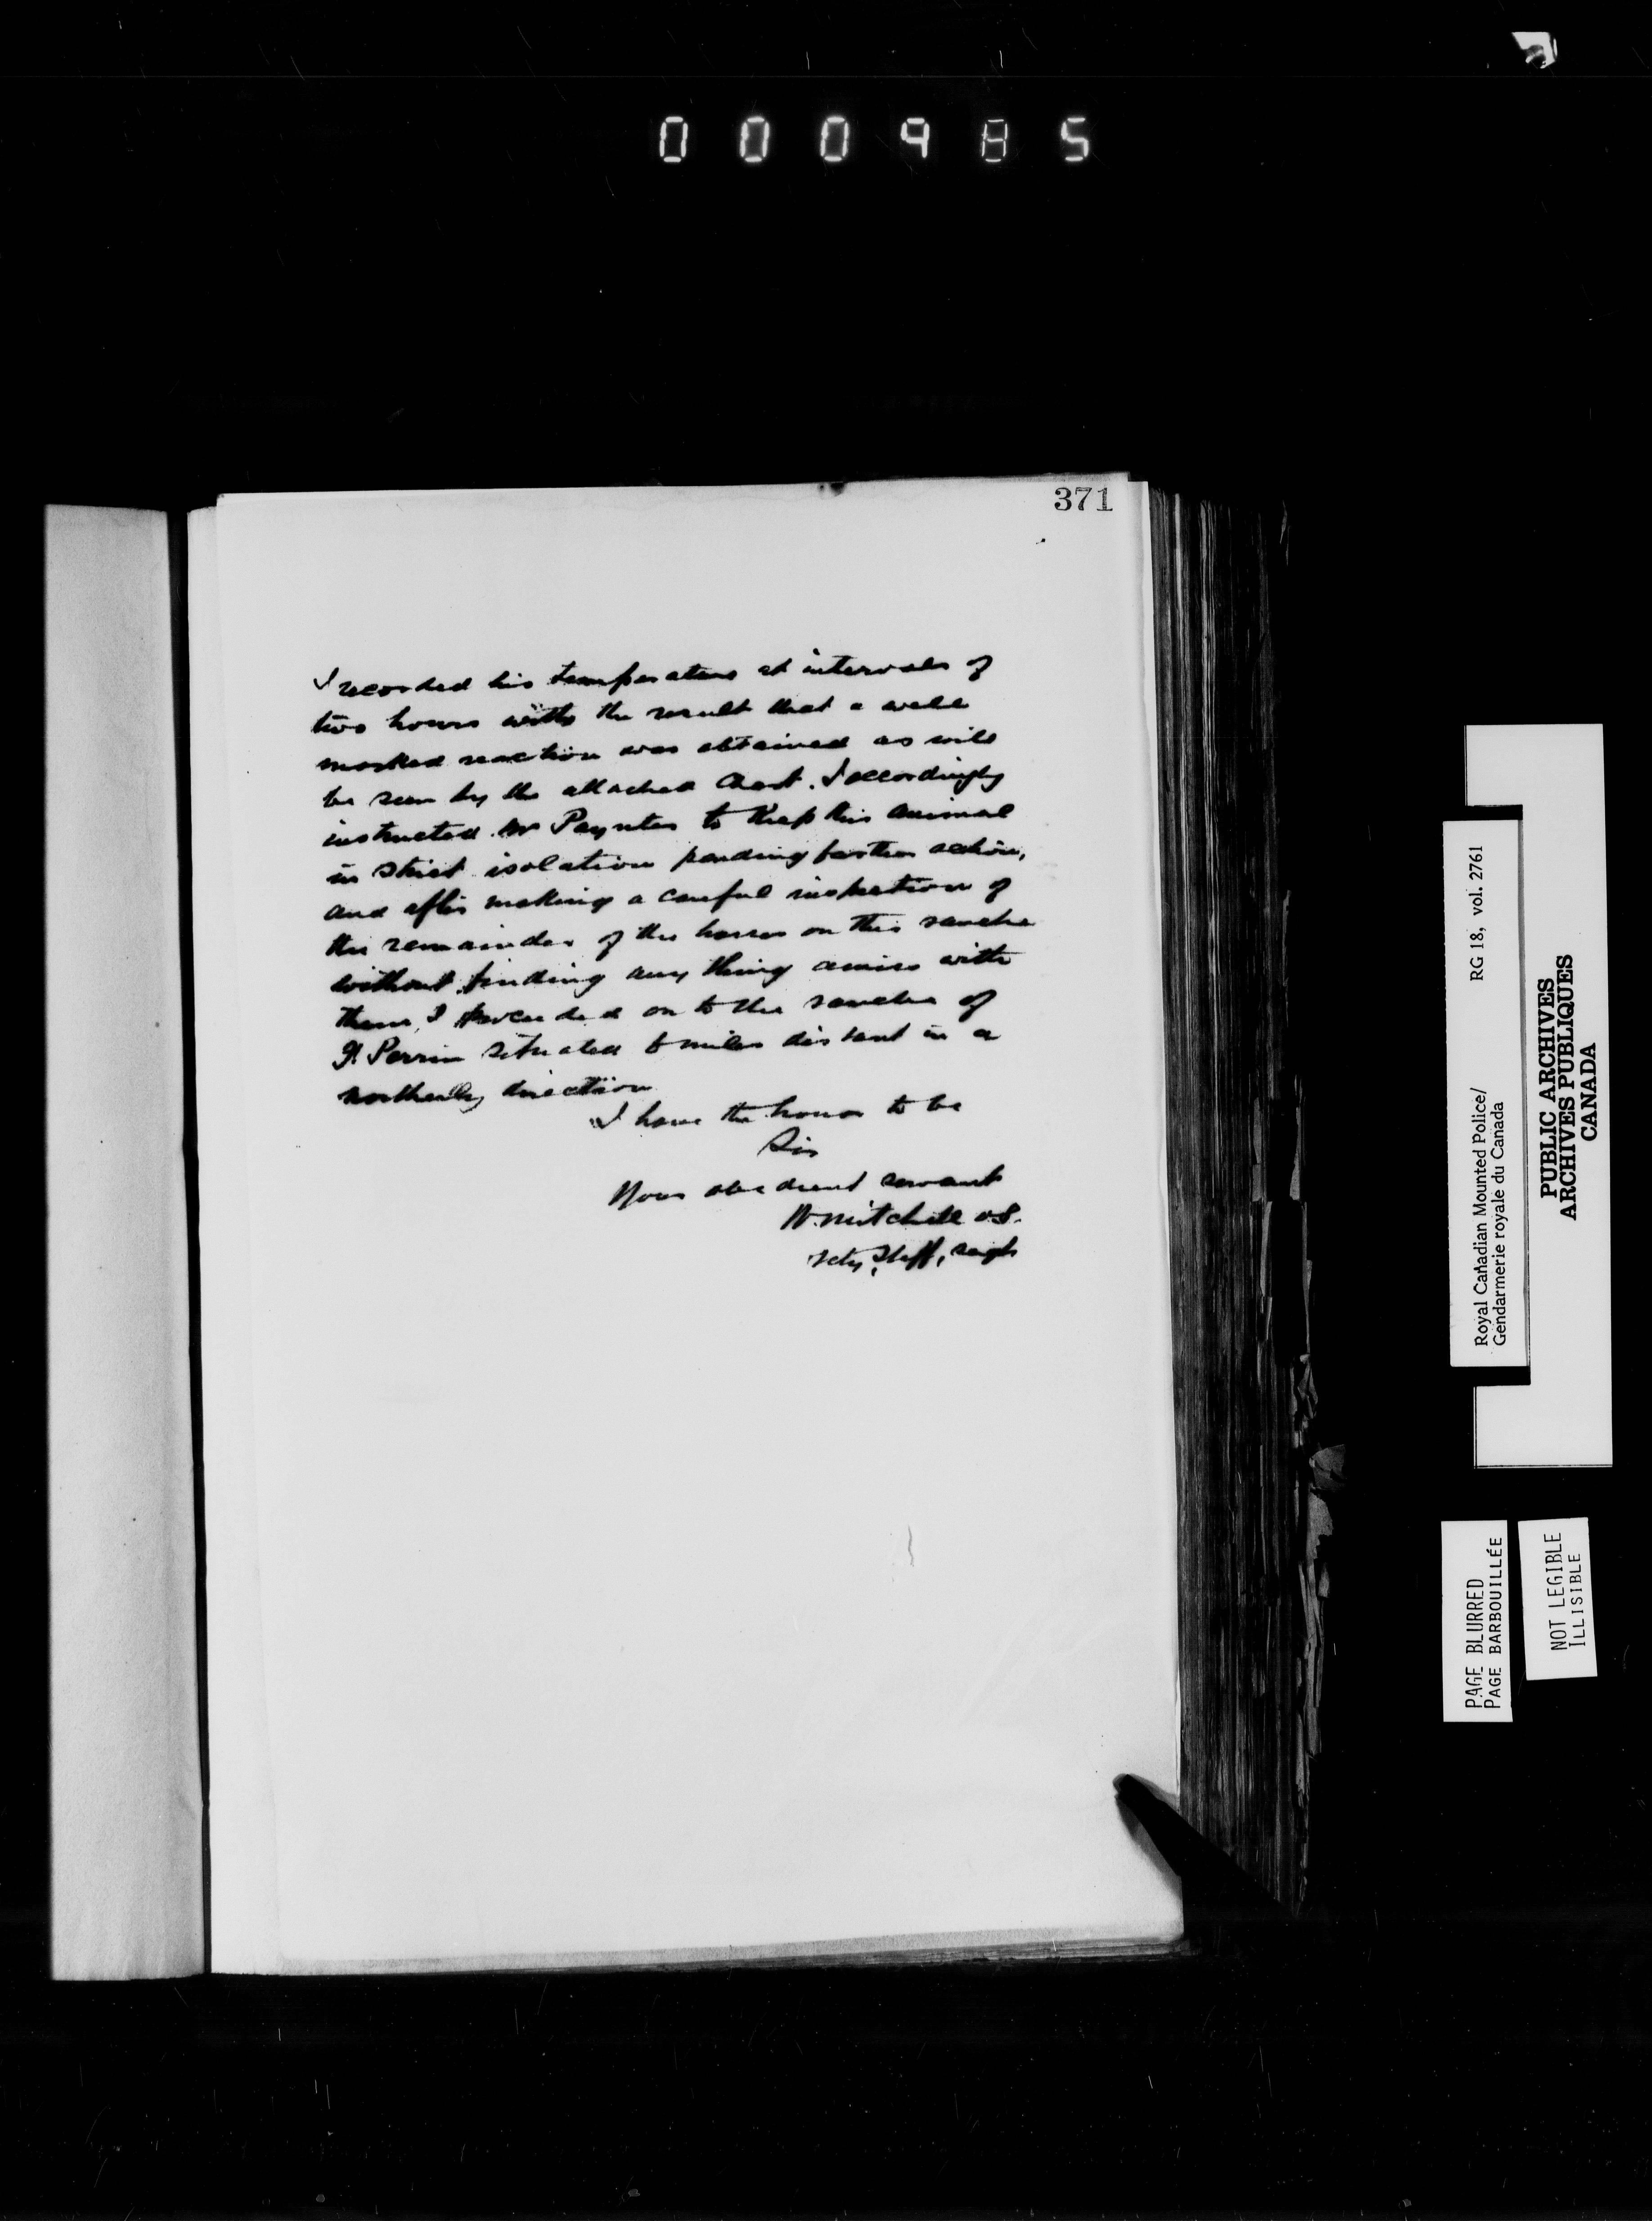 000985
371
I recorded his temperature at intervals of
two hours with the result that a well
marked reaction was obtained as will
be seen by the attached Chart. I accordingly
instructed Mr Paynter to Keep this animal
in strict isolation pending further action,
and after making a careful inspection of
the remainder of the horses on this ranche
without finding any thing amiss with
them, I proceeded on to the ranche of
Perrin situated 6 miles distant in a
northerly direction
I have the honor to be
Sir
Your obedient servant
W. Mitchell V.S.
Staff, Sergt
Royal Canadian Mounted Police/ RG 18, vol. 2761
Gendarmerie royale du Canada
PUBLIC ARCHIVES
ARCHIVES PUBLIQUES
CANADA
PAGE BLURRED
PAGE BARBOUILLÉE
NOT LEGIBLE
ILLISIBLE